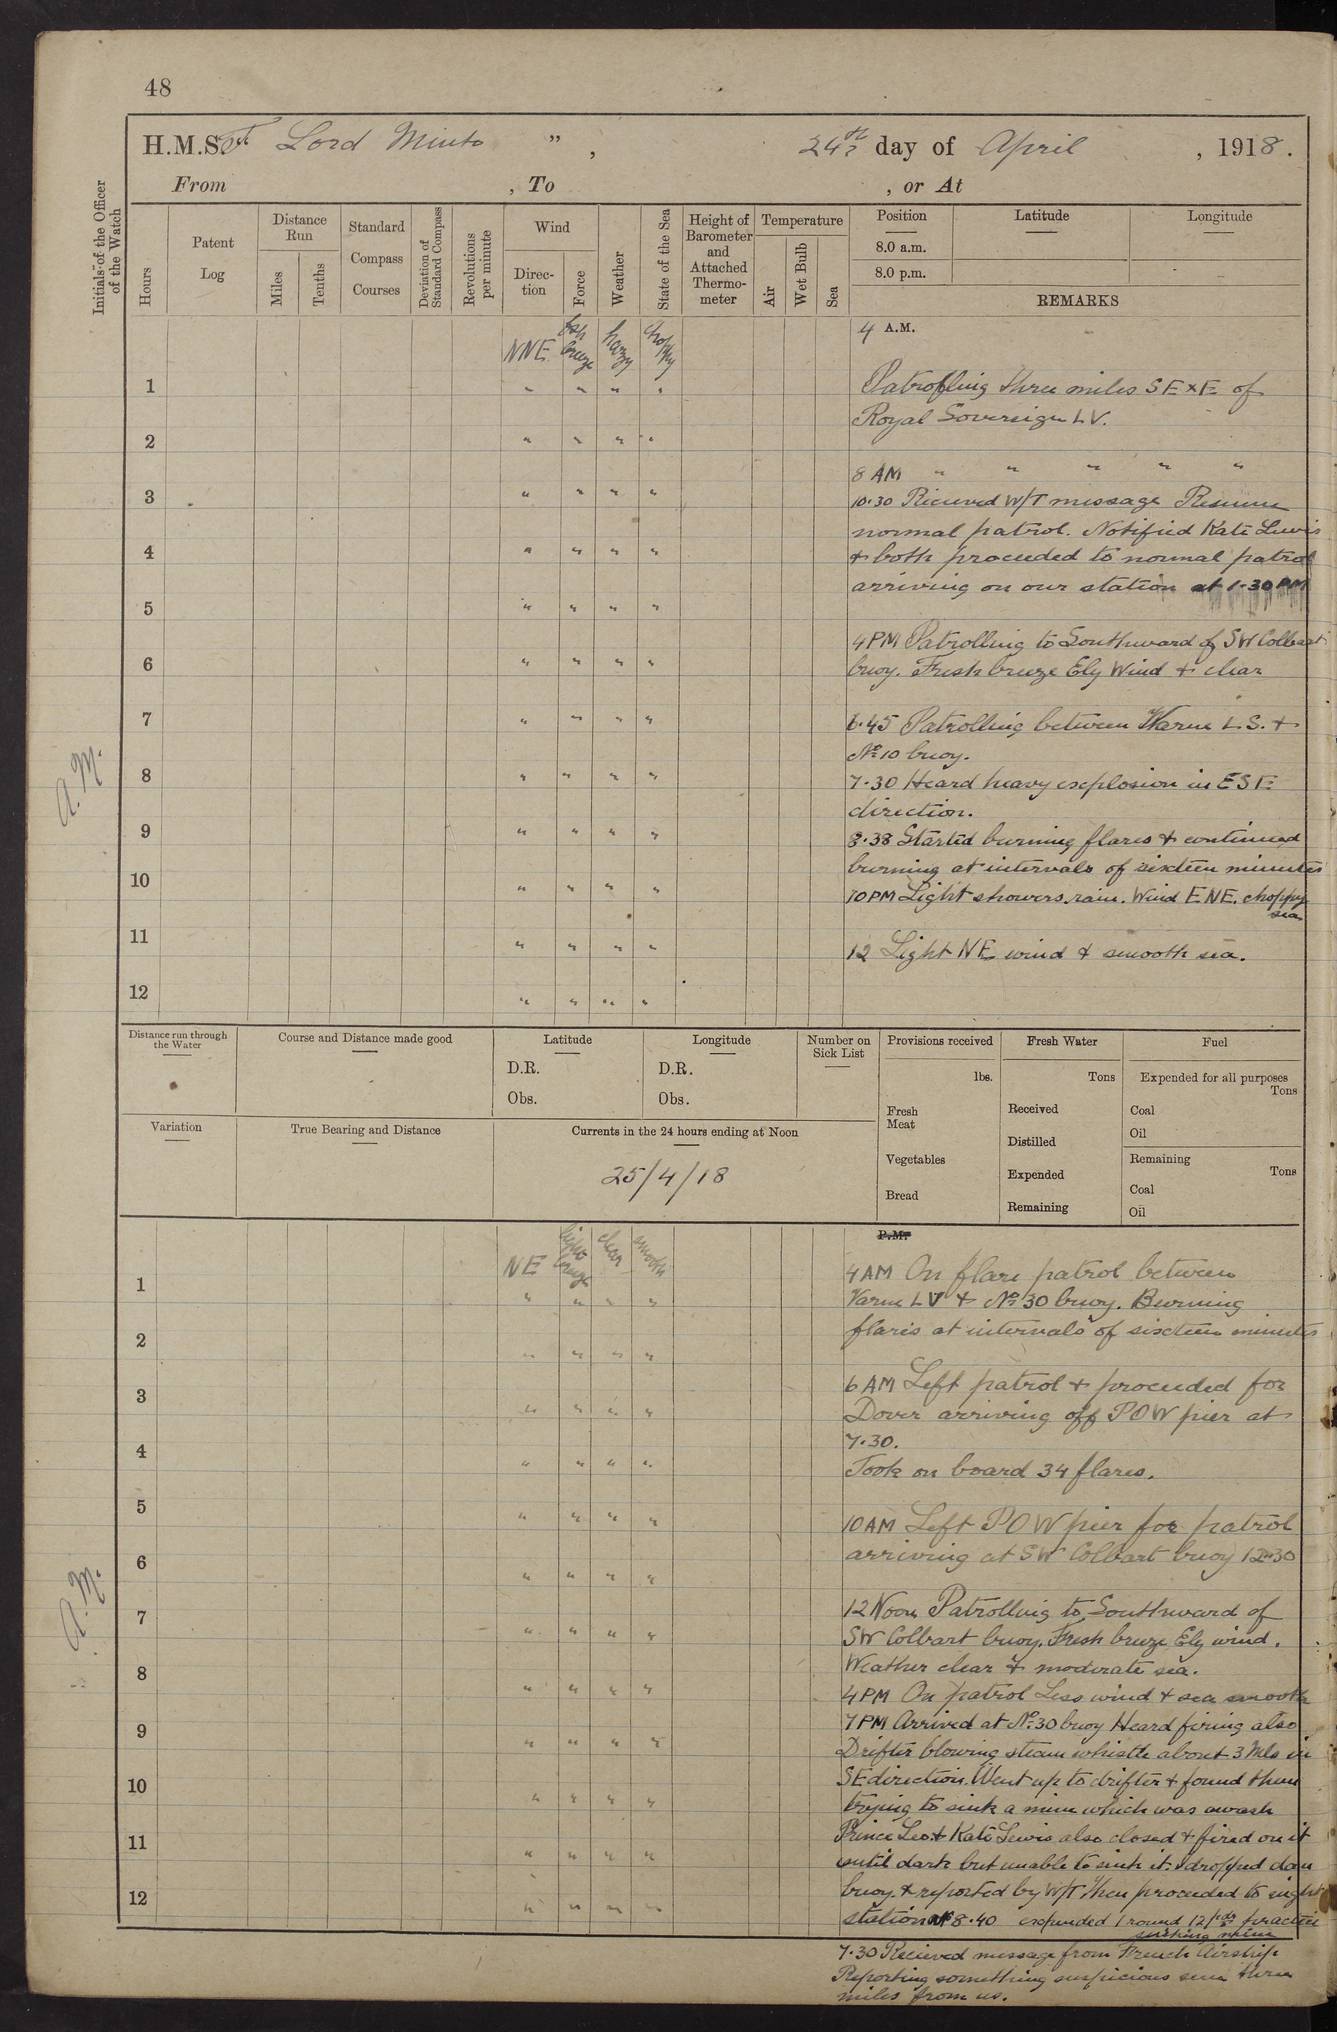 48
H.M.S. T Lord Minto " , 24th day of April , 1918 .
From , To , or At
Initials of the Officer of the Watch
Hours
Patent Log
Distance Run
Miles
Tenths
Standard Compass Courses
Deviation of Standard Compass
Revolutions per minute
Wind
Direc-tion
Force
Weather
State of the Sea
Height of Barometer and Attached Thermo-meter
Temperature
Air
Wet Bulb
Sea
Position
Latitude
Longitude
8.0 a.m.
8.0 p.m.
REMARKS
NNE fsh breeze hazy choppy
4 A.M.
1 " " " "
Patrolling three miles SE x E of
Royal Sovereign LV.
2 " " " "
8 AM " " " " "
3 " " " "
10.30 Recieved W/T message Resume
normal patrol. Notified Kate Lewis
4 " " " "
& both proceeded to normal patrol
arriving on our station at 1.30 PM
5 " " " "
4 PM Patrolling to Southward of SW Colbart
6 " " " "
buoy. Fresh breeze Ely Wind & clear
7 " " " "
6.45 Patrolling between Varne L.S. &
No 10 buoy.
A.M.
8 " " " "
7.30 Heard heavy explosion in ESE
direction.
9 " " " "
8.38 Started burning flares & continued
burning at intervals of sixteen minutes
10 " " " "
10 PM Light showers rain. Wind ENE. choppy
sea
11 " " " "
12 Light NE wind & smooth sea.
12 " " " "
Distance run through the Water
Course and Distance made good
Latitude
D.R.
Obs.
Longitude
D.R.
Obs.
Number on Sick List
Provisions received
lbs.
Fresh Meat
Vegetables
Bread
Fresh Water
Tons
Received
Distilled
Expended
Remaining
Fuel
Expended for all purposes
Tons
Coal
Oil
Remaining
Tons
Coal
Oil
Variation
True Bearing and Distance
Currents in the 24 hours ending at Noon
25/4/18
P.M.
NE light breeze clear smooth
4 AM On flare patrol between
1 " " " "
Varne LV & No 30 buoy. Burning
flares at intervals of sixteen minutes
2 " " " "
6 AM Left patrol & proceeded for
3 " " " "
Dover arriving off POW pier at
7.30.
4 " " " "
Took on board 34 flares.
5 " " " "
10 AM Left POW pier for patrol
arriving at SW Colbart buoy 12.30
6 " " " "
A.M.
12 Noon Patrolling to Southward of
7 " " " "
SW Colbart buoy. Fresh breeze Ely wind.
Weather clear & moderate sea.
8 " " " "
4 PM On patrol Less wind & sea smooth
7 PM Arrived at No 30 buoy Heard firing also
9 " " " "
Drifter blowing steam whistle about 3 Mls in
SE direction. Went up to drifter & found them
10 " " " "
trying to sink a mine which was awash
Prince Leo & Kate Lewis also closed & fired on it
11 " " " "
until dark but unable to sink it. dropped dan
buoy. & reported by W/T then proceeded to night
12 " " " "
station at 8.40 expended 1 round 12 pdr practice
sinking mine
7.30 Recieved message from French Airship
Reporting something suspicious seen three
miles from us.